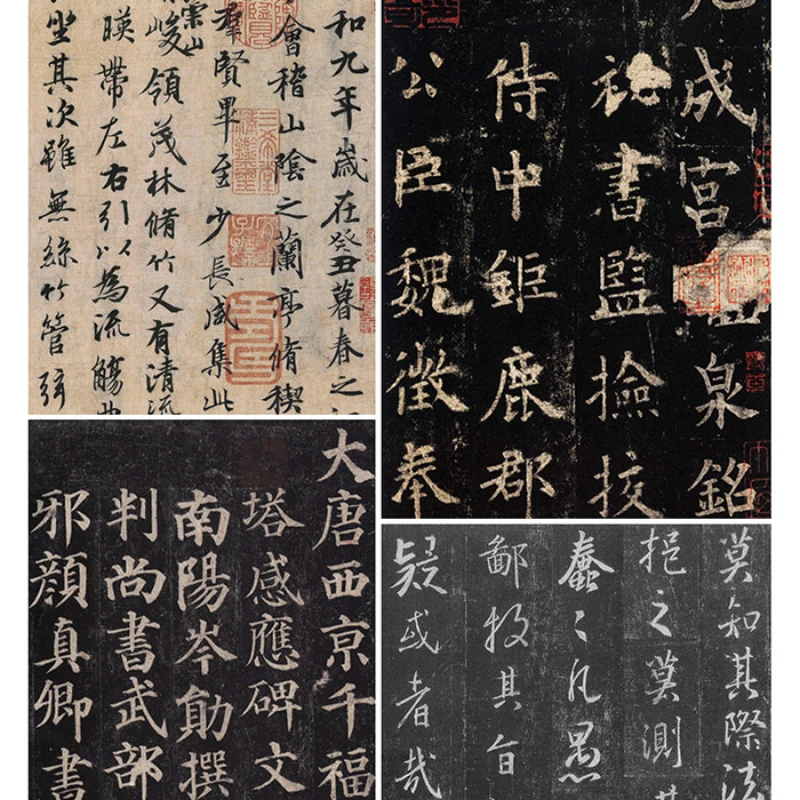 和九年歲在癸丑暮春之
會稽山陰之蘭亭脩稧
羣賢畢至少長咸集此
崇山峻領茂林脩竹又有清流
暎帶左右引以為流觴曲
坐其次雖無絲竹管弦
成宮泉銘
祕書監撿挍
侍中鉅鹿郡
公臣魏徵奉
大唐西京千福
塔感應碑文
南陽岑勛撰
判尚書武部
邪顏真卿書
莫知其際法
挹之莫測其
蠢〻凡愚
鄙投其旨
疑或者哉